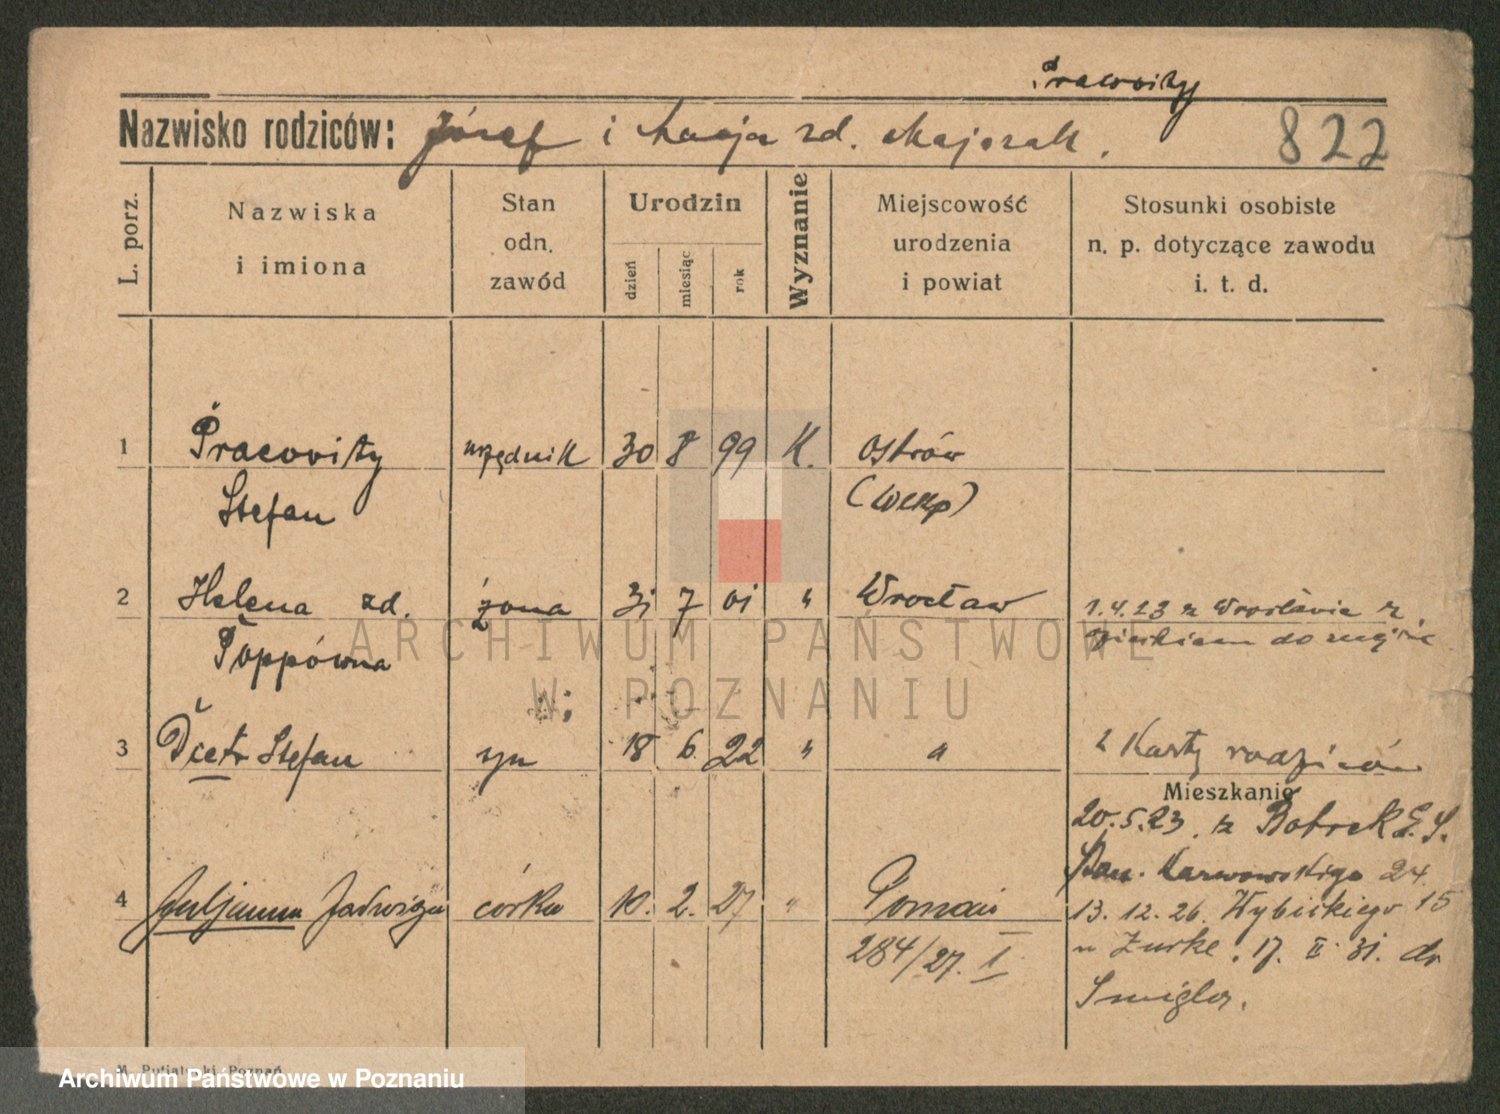 Pracovity
Nazwisko rodziców: Józef i Łucja zd. Majorak.
822
L. porz.
Nazwiska
i imiona
Stan
odn.
zawód
Urodzin
dzień
miesiąc
rok
Wyznanie
Miejscowość
urodzenia
i powiat
Stosunki osobiste
n. p. dotyczące zawodu
i. t. d.
1 Pracovity urzędnik 30 8 99 K. Ostrów
Stefan (Wlkp)
2 Helena zd. żona 31 7 01 " Wrocław
Poppówna
1.4.23 z Wrocławia z
dzieckiem do
3 Piotr Stefan syn 18. 6. 22 " "
2 Karty rodziców
Mieszkanie
20.5.23. z Bobrek G.S.
Karwowskiego 24.
4 Juljanna Jadwiga córka 10. 2. 27 " Poznań
284/27. I
13. 12. 26. Wybickiego 15
u Zurke. 17. II. 31. do
Śmigla.
M. Putiatycki Poznań
ARCHIWUM PAŃSTWOWE
W POZNANIU
Archiwum Państwowe w Poznaniu